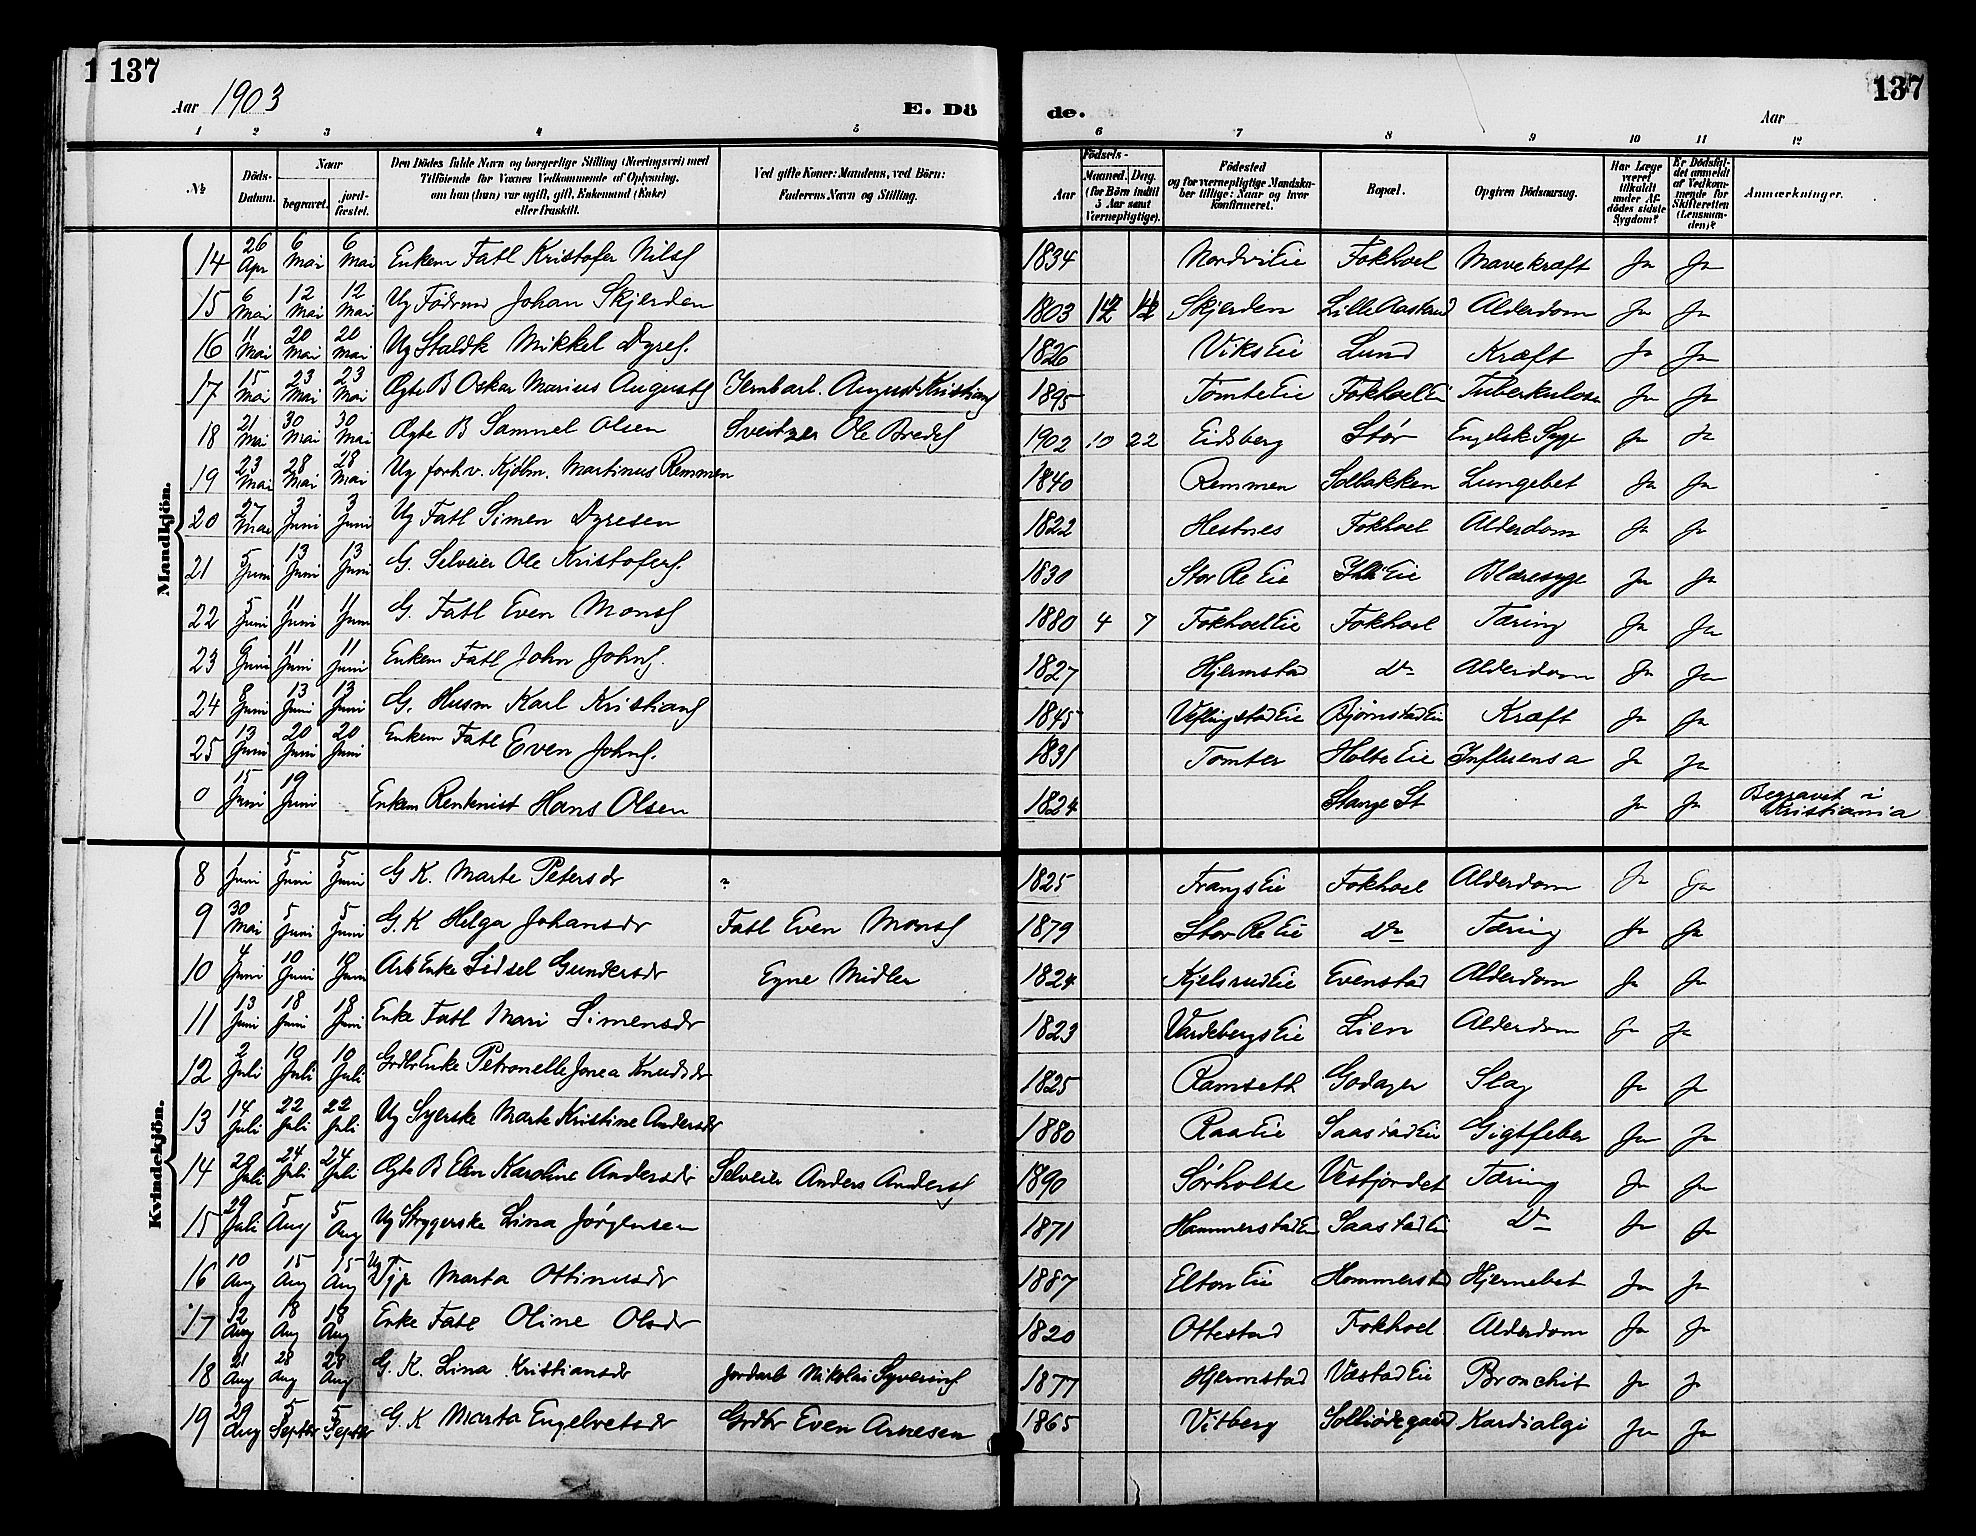 1 137
137
Aar 1903
E. Dö
de.
Aar
1 2 3 4 5 6 7 8 9 10 11 12
№
Döds-Datum.
Naar
begravet.
jord-fæstet.
Den Dödes fulde Navn og borgerlige Stilling (Næringsvei) med
Tilföiende for Voxnes Vedkommende af Oplysning,
om han (hun) var ugift, gift, Enkemand (Enke)
eller fraskilt.
Ved gifte Koner: Mandens, ved Börn:
Faderens Navn og Stilling.
Födsels-
Aar
Maaned. Dag.
(for Börn indtil
5 Aar samt
Værnepligtige).
Födested
og for værnepligtige Mandska-
ber tillige: Naar og hvor
konfirmeret.
Bopæl.
Opgiven Dödsaarsag.
Har Læge
været
tilkaldt
under Af-
dödes sidste
Sygdom?
Er Dödsfal-
det anmeldt
af Vedkom-
mende for
Skifteretten
(Lensman-
den)?
Anmærkninger.
Mandkjön.
14 26 Apr 6 Mai 6 Mai Enkem Fatl Kristofer Nilss 1834 Nordvi Eie Fokhoel Mavekræft Ja Ja
15 6 Mai 12 Mai 12 Mai Ug Födrmd Johan Skjerden 1803 Skjerden Lille Aasterud Alderdom Ja Ja
16 11 Mai 20 Mai 20 Mai Ug Staldk Mikkel Dyres. 1826 Viks Eie Lund Kræft Ja Ja
17 15 Mai 23 Mai 23 Mai Ægte B Oskar Marius Augusts Jernbarb. August Kristians 1895 Tomte Eie Fokhoel Ei Tuberkulose Ja Ja
18 21 Mai 30 Mai 30 Mai Ægte B Samuel Olsen Sveitzer Ole Bredes 1902 10 22 Eidsberg Stör Engelsk Syge Ja Ja
19 23 Mai 28 Mai 28 Mai Ug forhv. Kjøbm. Martinus Remmen 1840 Remmen Solbakken Lungebet Ja Ja
20 27 Mai 3 Juni 3 Juni Ug Fatl Simen Dyresen 1822 Hestnes Fokhoel Alderdom Ja Ja
21 5 Juni 13 Juni 13 Juni G. Selveier Ole Kristofers 1830 Stor Re Eie Eie Blæresyge Ja Ja
22 5 Juni 11 Juni 11 Juni G. Fatl Even Monss 1880 4 7 Fokhoel Eie Fokhoel Tæring Ja Ja
23 6 Juni 11 Juni 11 Juni Enkem Fatl John Johns. 1827 Hjermstad Do Alderdom Ja Ja
24 8 Juni 13 Juni 13 Juni G. Husm Karl Kristians 1845 Veflingstad Eie Bjørnstad Eie Kræft Ja Ja
25 13 Juni 20 Juni 20 Juni Enkem Fatl Even Johns. 1831 Tomter Holte Eie Influensa Ja Ja
0 15 Juni 19 Juni Enkem Rentenist Hans Olsen 1824 Stange St Ja Ja Begravet i Kristiania
Kvindekjön.
8 1 Juni 5 Juni 5 Juni G K. Marte Petersdr " 1825 Frangs Eie Fokhoel Alderdom Ja Ja
9 30 Mai 5 Juni 5 Juni G. K Helga Johansdr Fatl Even Monss 1879 Stor Re Eie Do Tæring Ja Ja
10 4 Juni 10 Juni 10 Juni Arb Enke Sidsel Gundersdr Egne Midler 1824 Kjelsrud Eie Evenstad Alderdom Ja Ja
11 13 Juni 18 Juni 18 Juni Enke Fatl Mari Simensdr 1823 Vardebergs Eie Lien Alderdom Ja Ja
12 2 Juli 10 Juli 10 Juli Grdbr Enke Petronelle Jonea Knudsdr 1825 Ramseth Godager Slag Ja Ja
13 14 Juli 22 Juli 22 Juli Ug Syerske Marte Kristine Andersdr 1880 Raa Eie Saastad Eie Gigtfeber Ja Ja
14 20 Juli 24 Juli 24 Juli Ægte B Elen Karoline Andersdr Selveier Anders Anderss 1890 Sørholte Vestjordet Tæring Ja Ja
15 29 Juli 5 Aug 5 Aug Ug Strygerske Lina Jørgensen 1871 Hammerstad Eie Saastad Eie Do Ja Ja
16 10 Aug 15 Aug 15 Aug Ug Tjp Marta Ottinusdr 1887 Elton Eie Hommerstd Hjernebet Ja Ja
17 12 Aug 18 Aug 18 Aug Enke Fatl Oline Olsdr 1820 Ottestad Fokhoel Alderdom Ja Ja
18 21 Aug 28 Aug 28 Aug G. K. Lina Kristiansdr Jordarb Nikolai Syverins 1877 Hjermstad Vastad Eie Bronchit Ja Ja
19 29 Aug 5 Septbr 5 Septbr G. K Marta Engebretsdr Grdbr Even Arnesen 1865 Vitberg Kardialgi Ja Ja